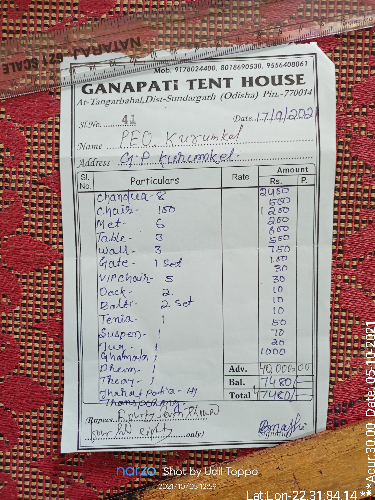 NATARAJ 621 SCALE
Mob. 9178024400, 8018690530, 9556408061
GANAPATI TENT HOUSE
At-Tangarbahal, Dist-Sundargarh (Odisha) Pin.-770014
Sl.No. 41 Date 17/9/2021
Name PEO Kurumkel
Address G.P Kurumkel.
Sl. No. Particulars Rate Amount Rs. P.
Chandua- 8 2400
Chair- 100 500
Met- 5 1200
Table- 3 200
Wall- 3 600
Gate- 1 Set 500
VIP chair- 5 750
Deck- 2 100
Baltr- 2 set 30
Tenia- 1 30
Suspen- 1 10
Jug- 1 10
Ghamala 1 10
Dram- 1 50
Theay- 1 70
20
1000
Adv. 40,000.00
Bal. 7480/-
Total 47480/-
Rupees
four hd eighty only)
narzo Shot by Udit Toppo
2021/10/05 12:59
Lat Lon-22 31.84,84.14 *** Acur 30.00, Date: 05-10-2021